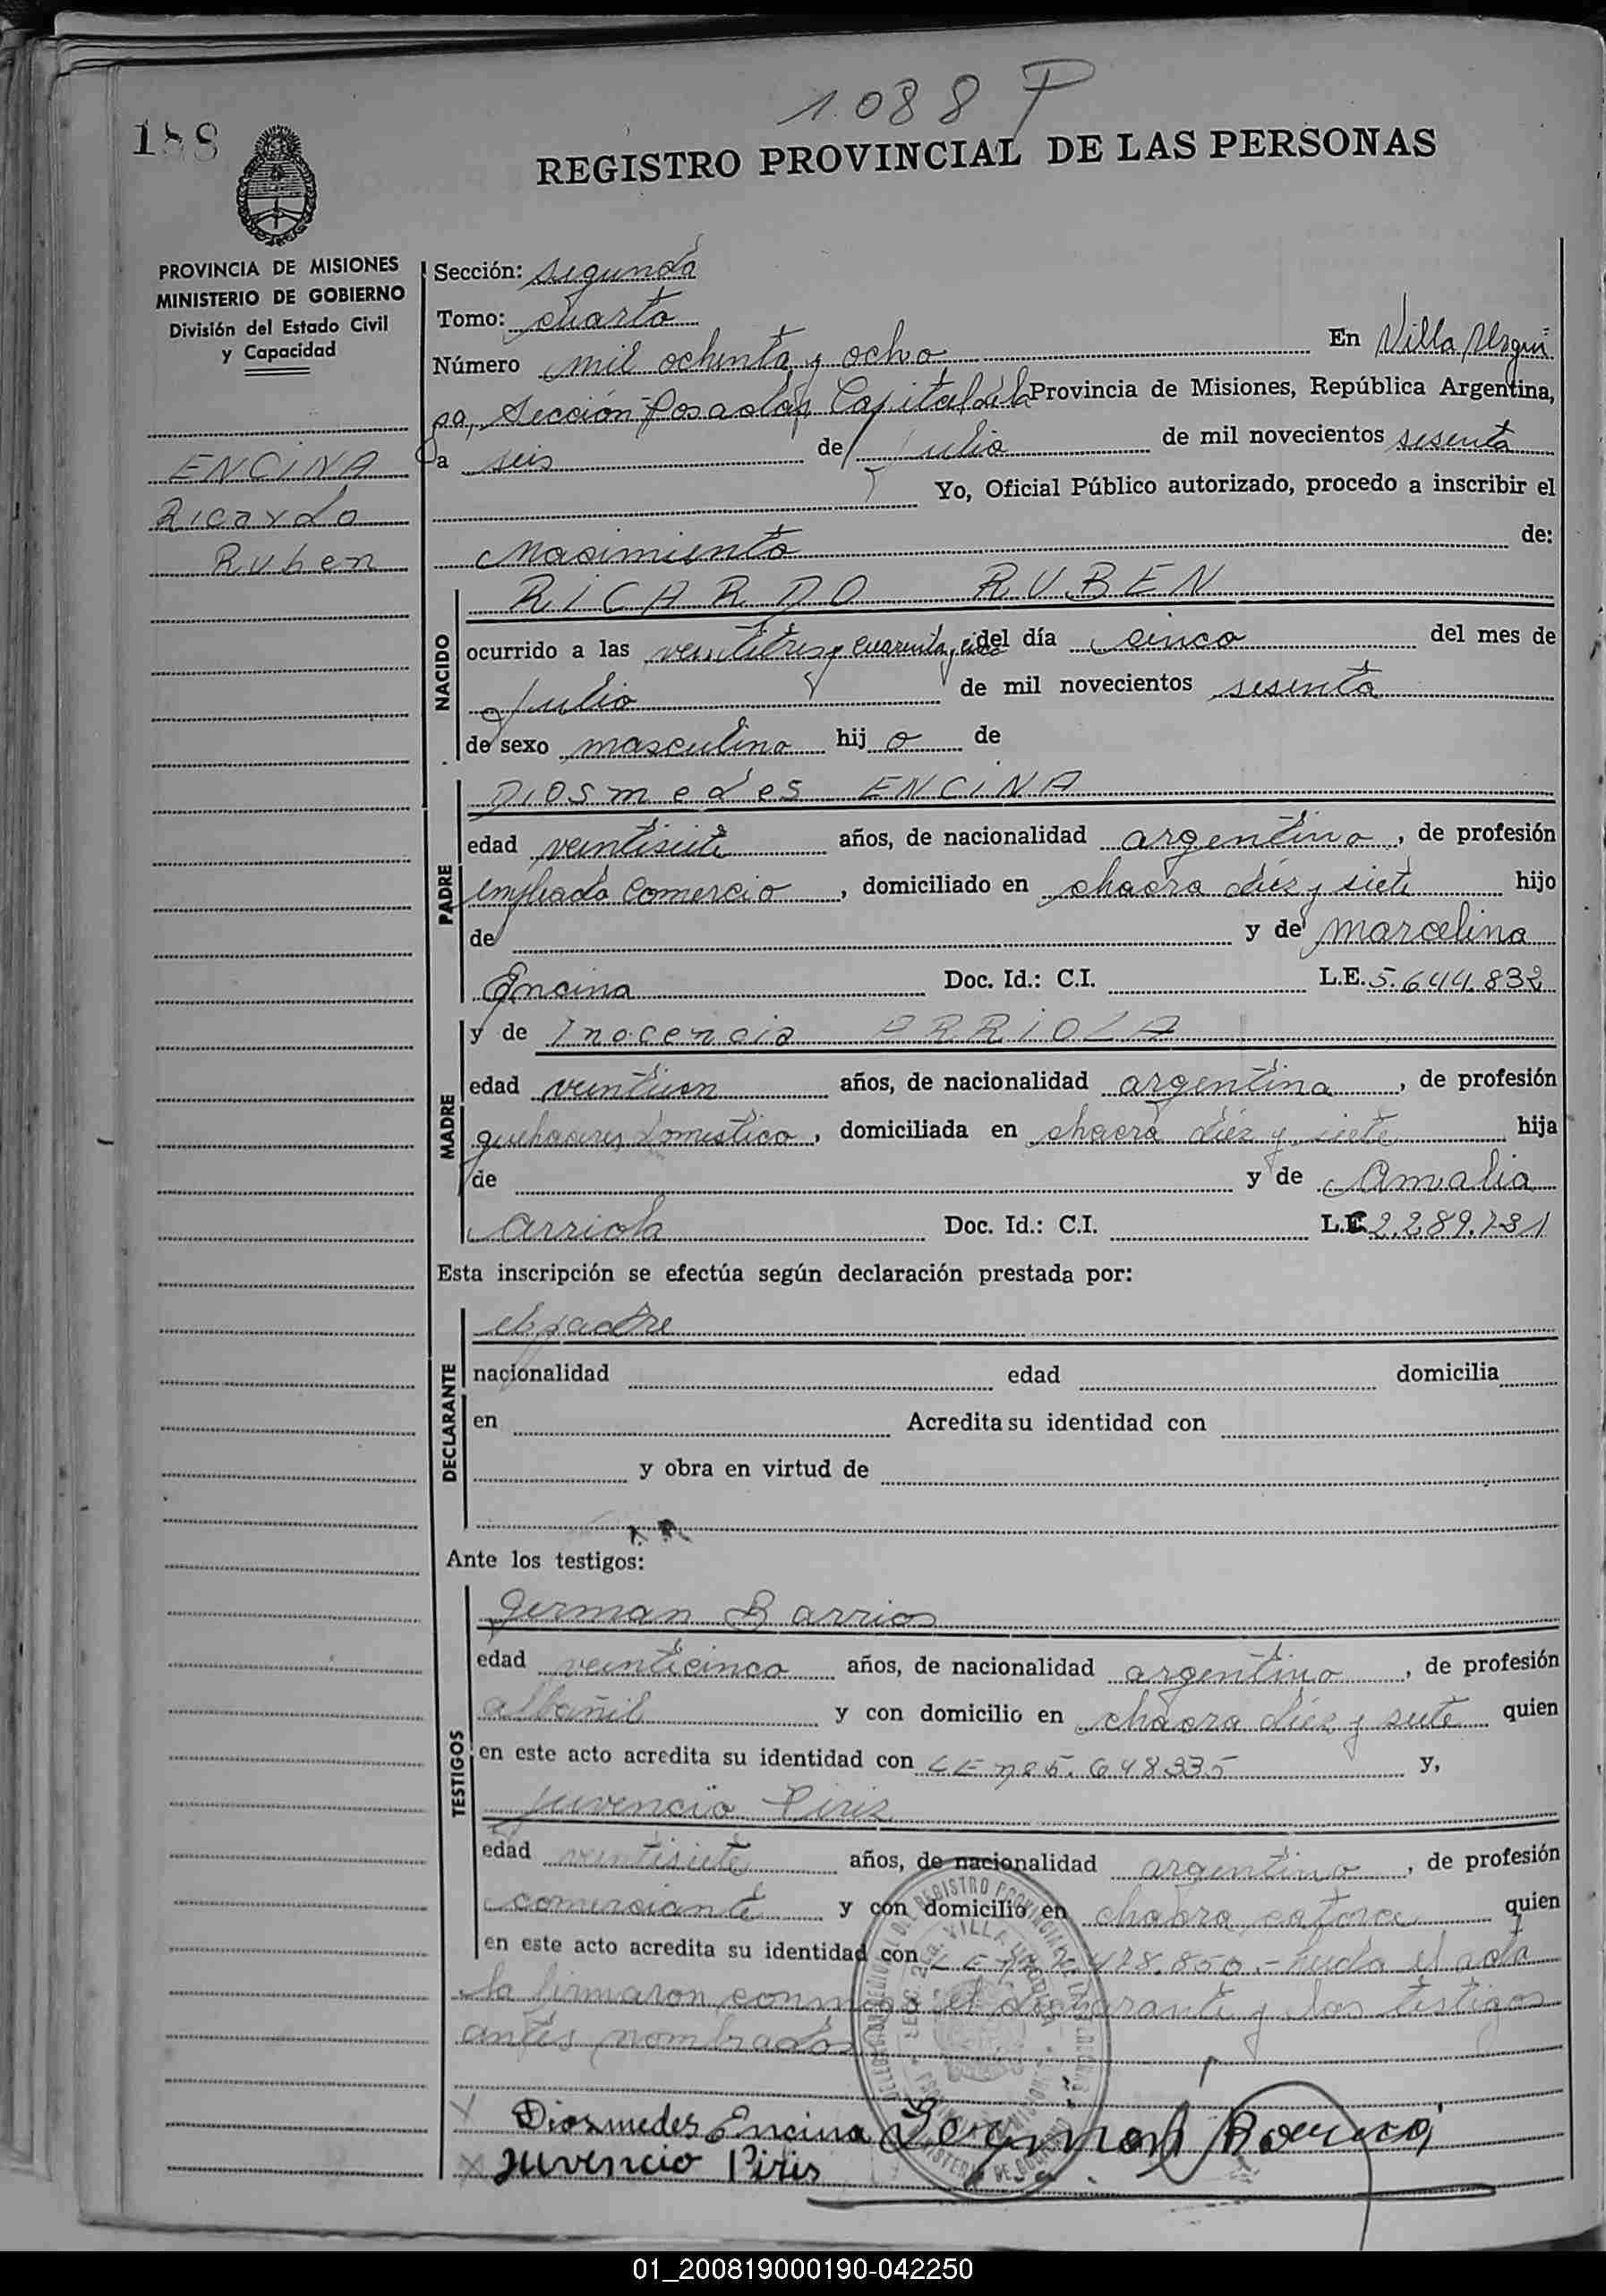 1088 P
188
REGISTRO PROVINCIAL DE LAS PERSONAS
PROVINCIA DE MISIONES
MINISTERIO DE GOBIERNO
División del Estado Civil
y Capacidad
ENCINA
Ricardo
Ruben
Sección: segunda
Tomo: cuarto
Número mil ochenta y ocho En Villa Urqui
za, Sección Posadas, Capital de la Provincia de Misiones, República Argentina,
a seis de Julio de mil novecientos sesenta
Yo, Oficial Público autorizado, procedo a inscribir el
Nacimiento de:
NACIDO
RICARDO RUBEN
ocurrido a las ventitres y cuarenta y cinco del día cinco del mes de
Julio de mil novecientos sesenta
de sexo masculino hij o de
PADRE
Diosmedes ENCINA
edad veintisiete años, de nacionalidad argentino, de profesión
empleado Comercio, domiciliado en chacra diez y siete hijo
de y de Marcelina
Encina Doc. Id.: C.I. L.E. 5.644.832
MADRE
y de Inocencia ARRIOLA
edad veintiun años, de nacionalidad argentina, de profesión
quehaceres domestico, domiciliada en chacra diez y siete hija
de y de Amalia
Arriola Doc. Id.: C.I. L.C. 2.289.731
Esta inscripción se efectúa según declaración prestada por:
DECLARANTE
el padre
nacionalidad edad domicilia
en Acredita su identidad con
y obra en virtud de
Ante los testigos:
TESTIGOS
German Barrios
edad veinticinco años, de nacionalidad argentino, de profesión
albañil y con domicilio en chacra diez y siete quien
en este acto acredita su identidad con LE nº 5.648335 y,
Juvencio Piris
edad veintisiete años, de nacionalidad argentino, de profesión
comerciante y con domicilio en chacra catorce quien
en este acto acredita su identidad con L E 478.850.- Leida el acta
la firmaron conmigo el declarante y los testigos
antes nombrados
Diosmedes Encina German Barrios
Juvencio Piris
01_200819000190-042250